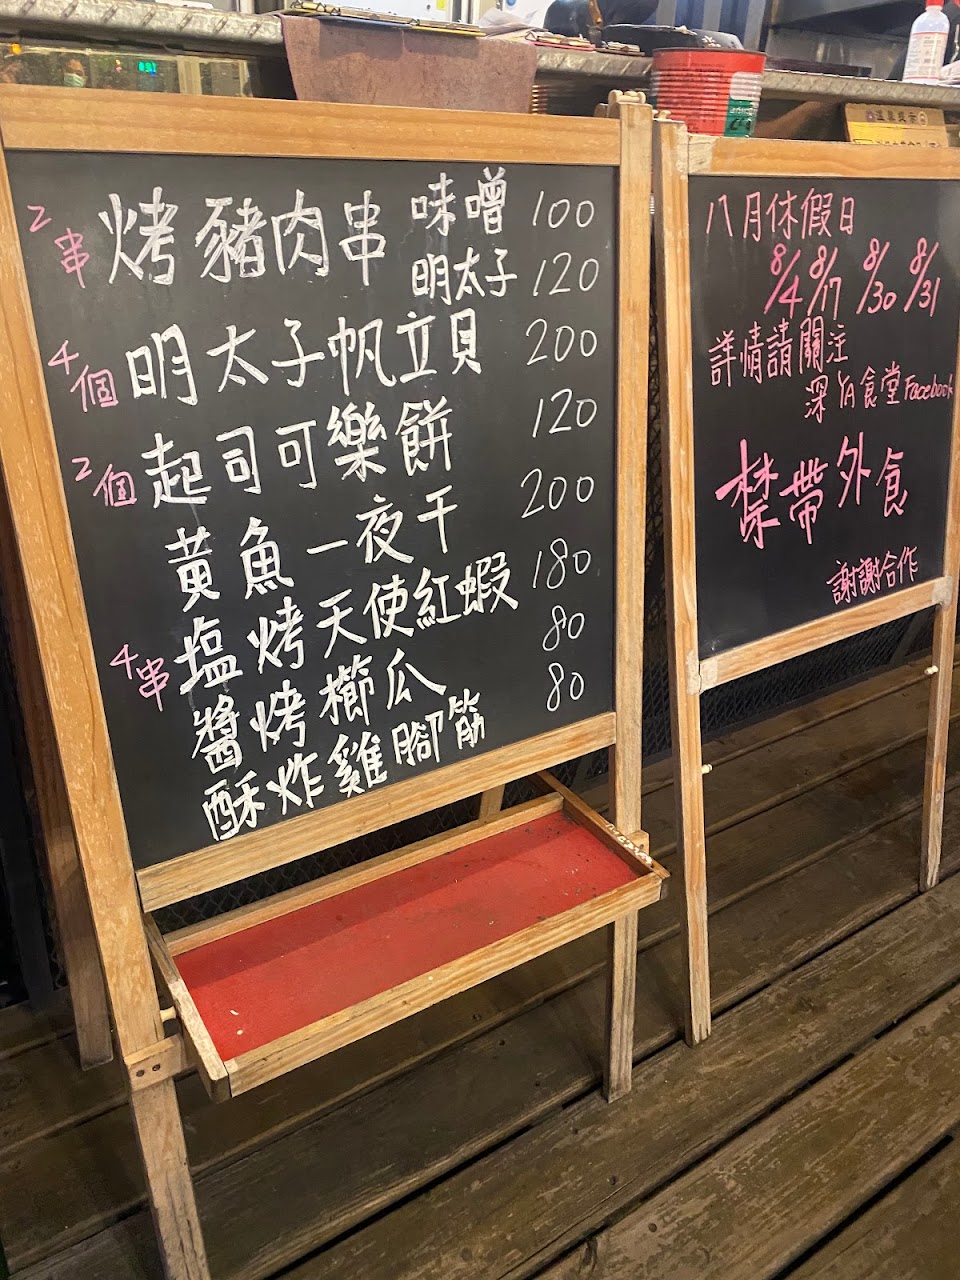 2串 烤豬肉串 味噌 100
明太子 120
4個 明太子帆立貝 200
2個 起司可樂餅 120
黃魚一夜干 200
4串 塩烤天使紅蝦 180
醬烤櫛瓜 80
酥炸雞腳筋 80
八月休假日
8/4 8/17 8/30 8/31
詳情請關注
深YA食堂Facebook
禁帶外食
謝謝合作